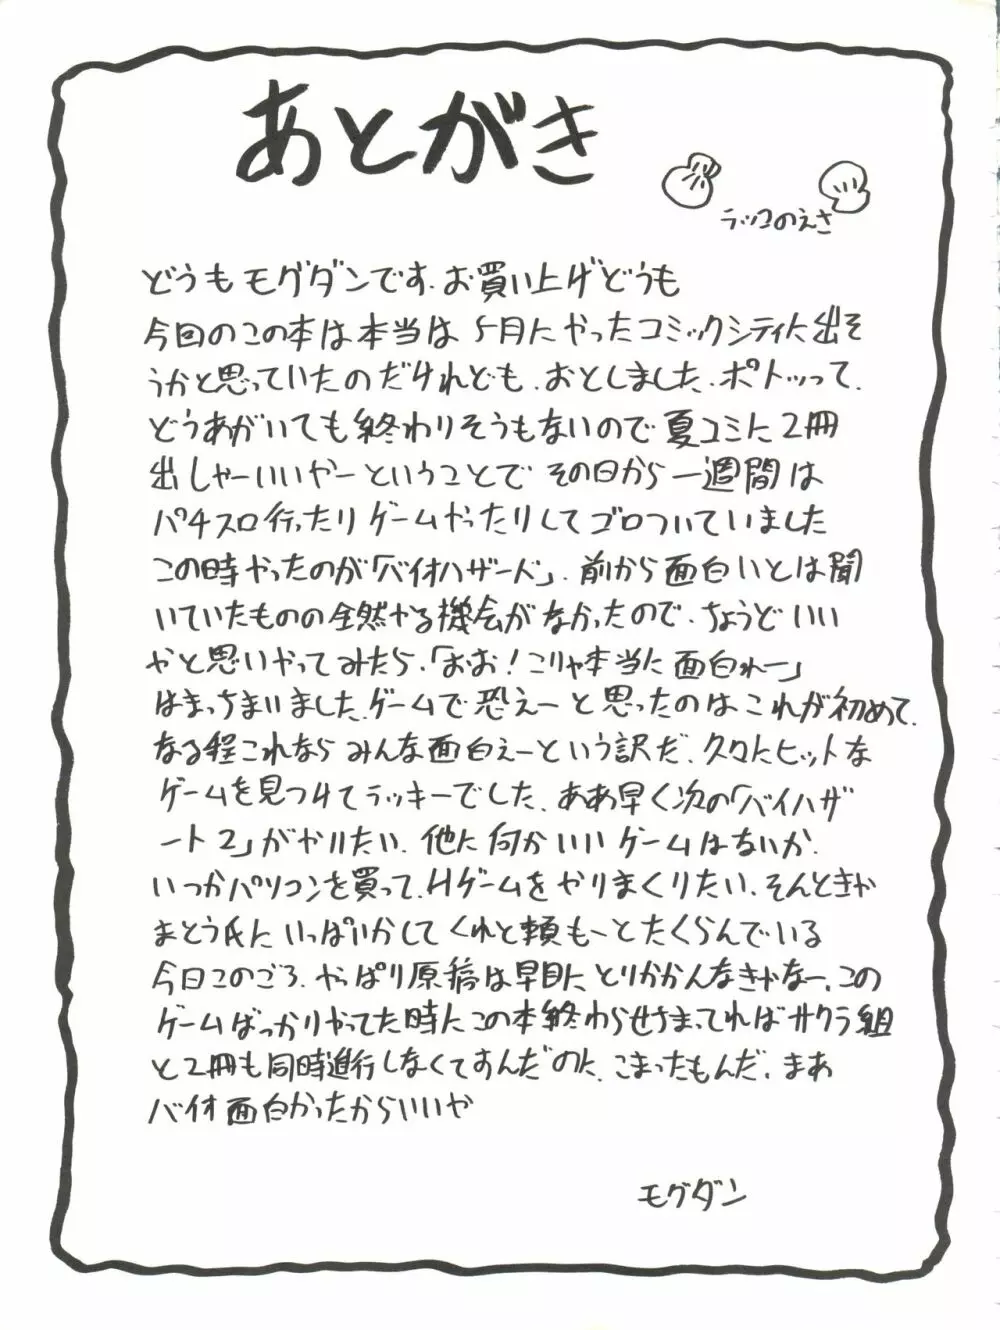 あとがき
ラッコのえさ
どうもモグダンです.お買い上げどうも
今回のこの本は本当は5月にやったコミックシティに出そ
うかと思っていたのだけれども.おとしました.ポトッって.
どうあがいても終わりそうもないので夏コミに2冊
出しゃーいいやーということでその日から一週間は
パチスロ行ったりゲームやったりしてゴロついていました
この時やったのが「バイオハザード」.前から面白いとは聞
いていたものの全然やる機会がなかったので.ちょうどいい
やと思いやってみたら.「おお!こりゃ本当に面白れー」
はまっちまいました.ゲームで恐えーと思ったのはこれが初めて.
なる程これならみんな面白えーという訳だ.久々にヒットな
ゲームを見つけてラッキーでした.ああ早く次の「バイハザ
ード2」がやりたい.他に何かいいゲームはないか.
いつかパソコンを買って.Hゲームをやりまくりたい.そんときゃ
まとう氏にいっぱいかしてくれと頼も〜とたくらんでいる
今日このごろ.やっぱり原稿は早目にとりかかんなきゃなー.この
ゲームばっかりやってた時にこの本終わらせちまってればサクラ組
と2冊も同時進行しなくてすんだのに.こまったもんだ.まあ
バイオ面白かったからいいや
モグダン